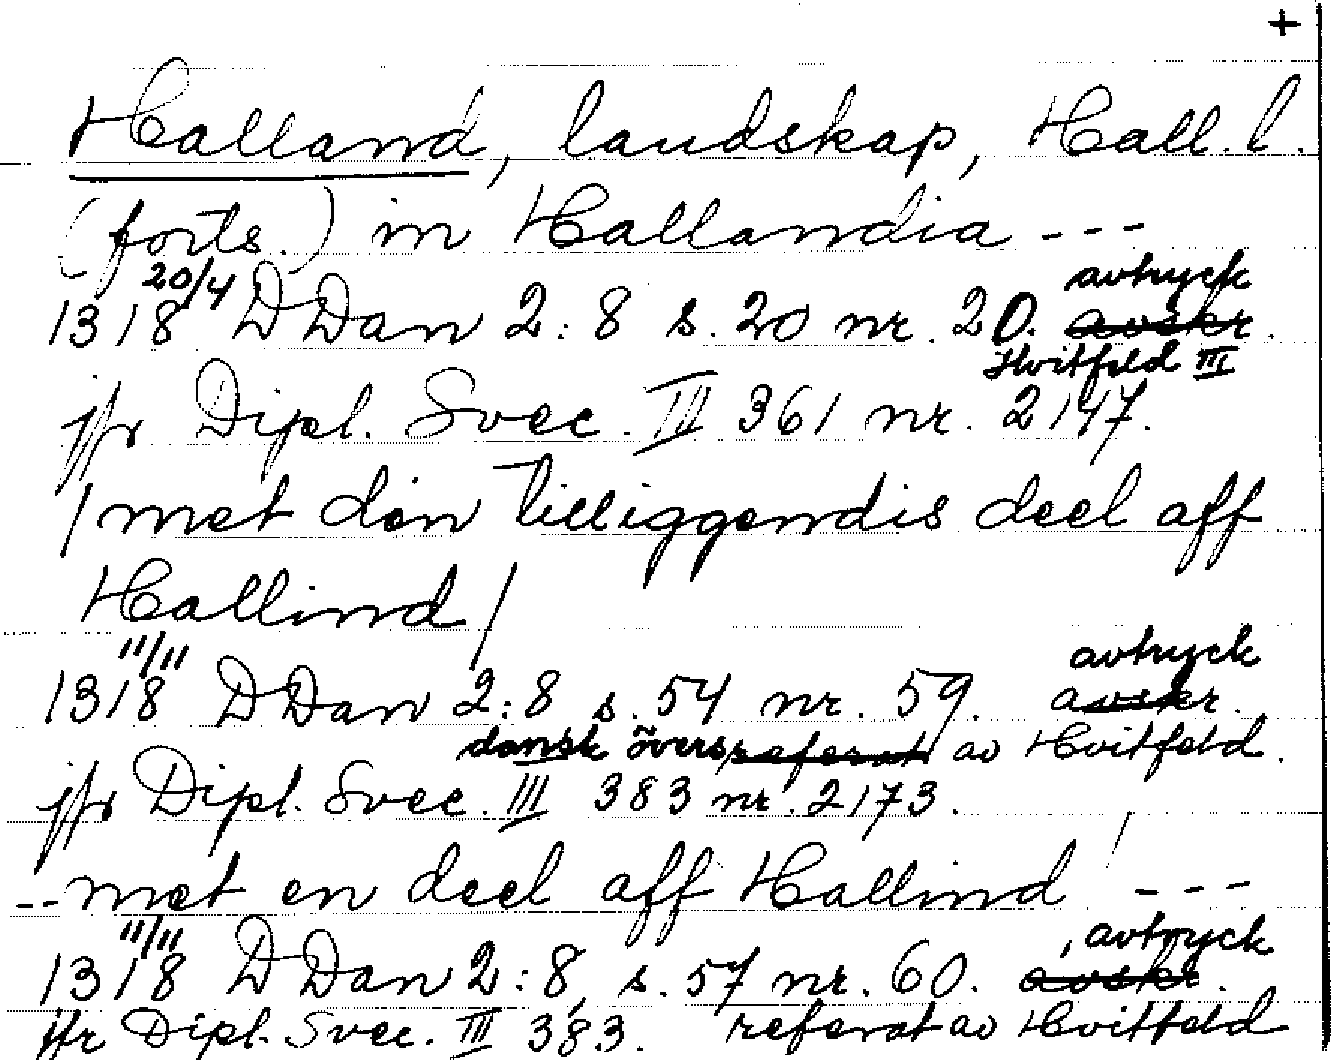 +
Halland, landskap, Hall. l.
(forts.) in Hallandia ---
1318 20/4 DDan 2:8 s. 20 nr. 20. avskr. avtryck
Hvitfeld III
jfr Dipl. Svec. III 361 nr. 2147.
/met den tilliggendis deel aff
Hallind/
1318 11/11 DDan 2:8 s. 54 nr. 59. avskr. avtryck
dansk övers referat av Hvitfeld.
jfr Dipl. Svec. III 383 nr. 2173.
--met en deel aff Hallind ---
1318 11/11 DDan 2:8, s. 57 nr. 60. avskr. , avtryck
jfr Dipl. Svec. III 383. referat av Hvitfeld